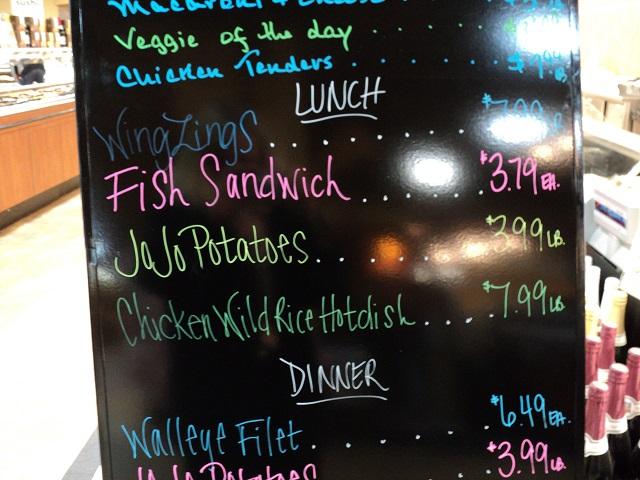 Macaroni & Cheese
Veggie of the day
Chicken Tenders
LUNCH
WingZings . . . . . . . $7.99 lb.
Fish Sandwich . . . . . . $3.79 EA.
JoJo Potatoes . . . . . . $3.99 LB.
Chicken Wild Rice Hotdish . . . . $7.99 LB.
DINNER
Walleye Filet . . . . . . $6.49 EA.
JoJo Potatoes $3.99 LB.